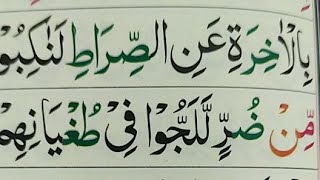 بِالْاٰخِرَةِ عَنِ الصِّرَاطِ لَنٰكِبُوْ
مِّنْ ضُرٍّ لَّلَجُّوْا فِیْ طُغْیَانِهِمْ